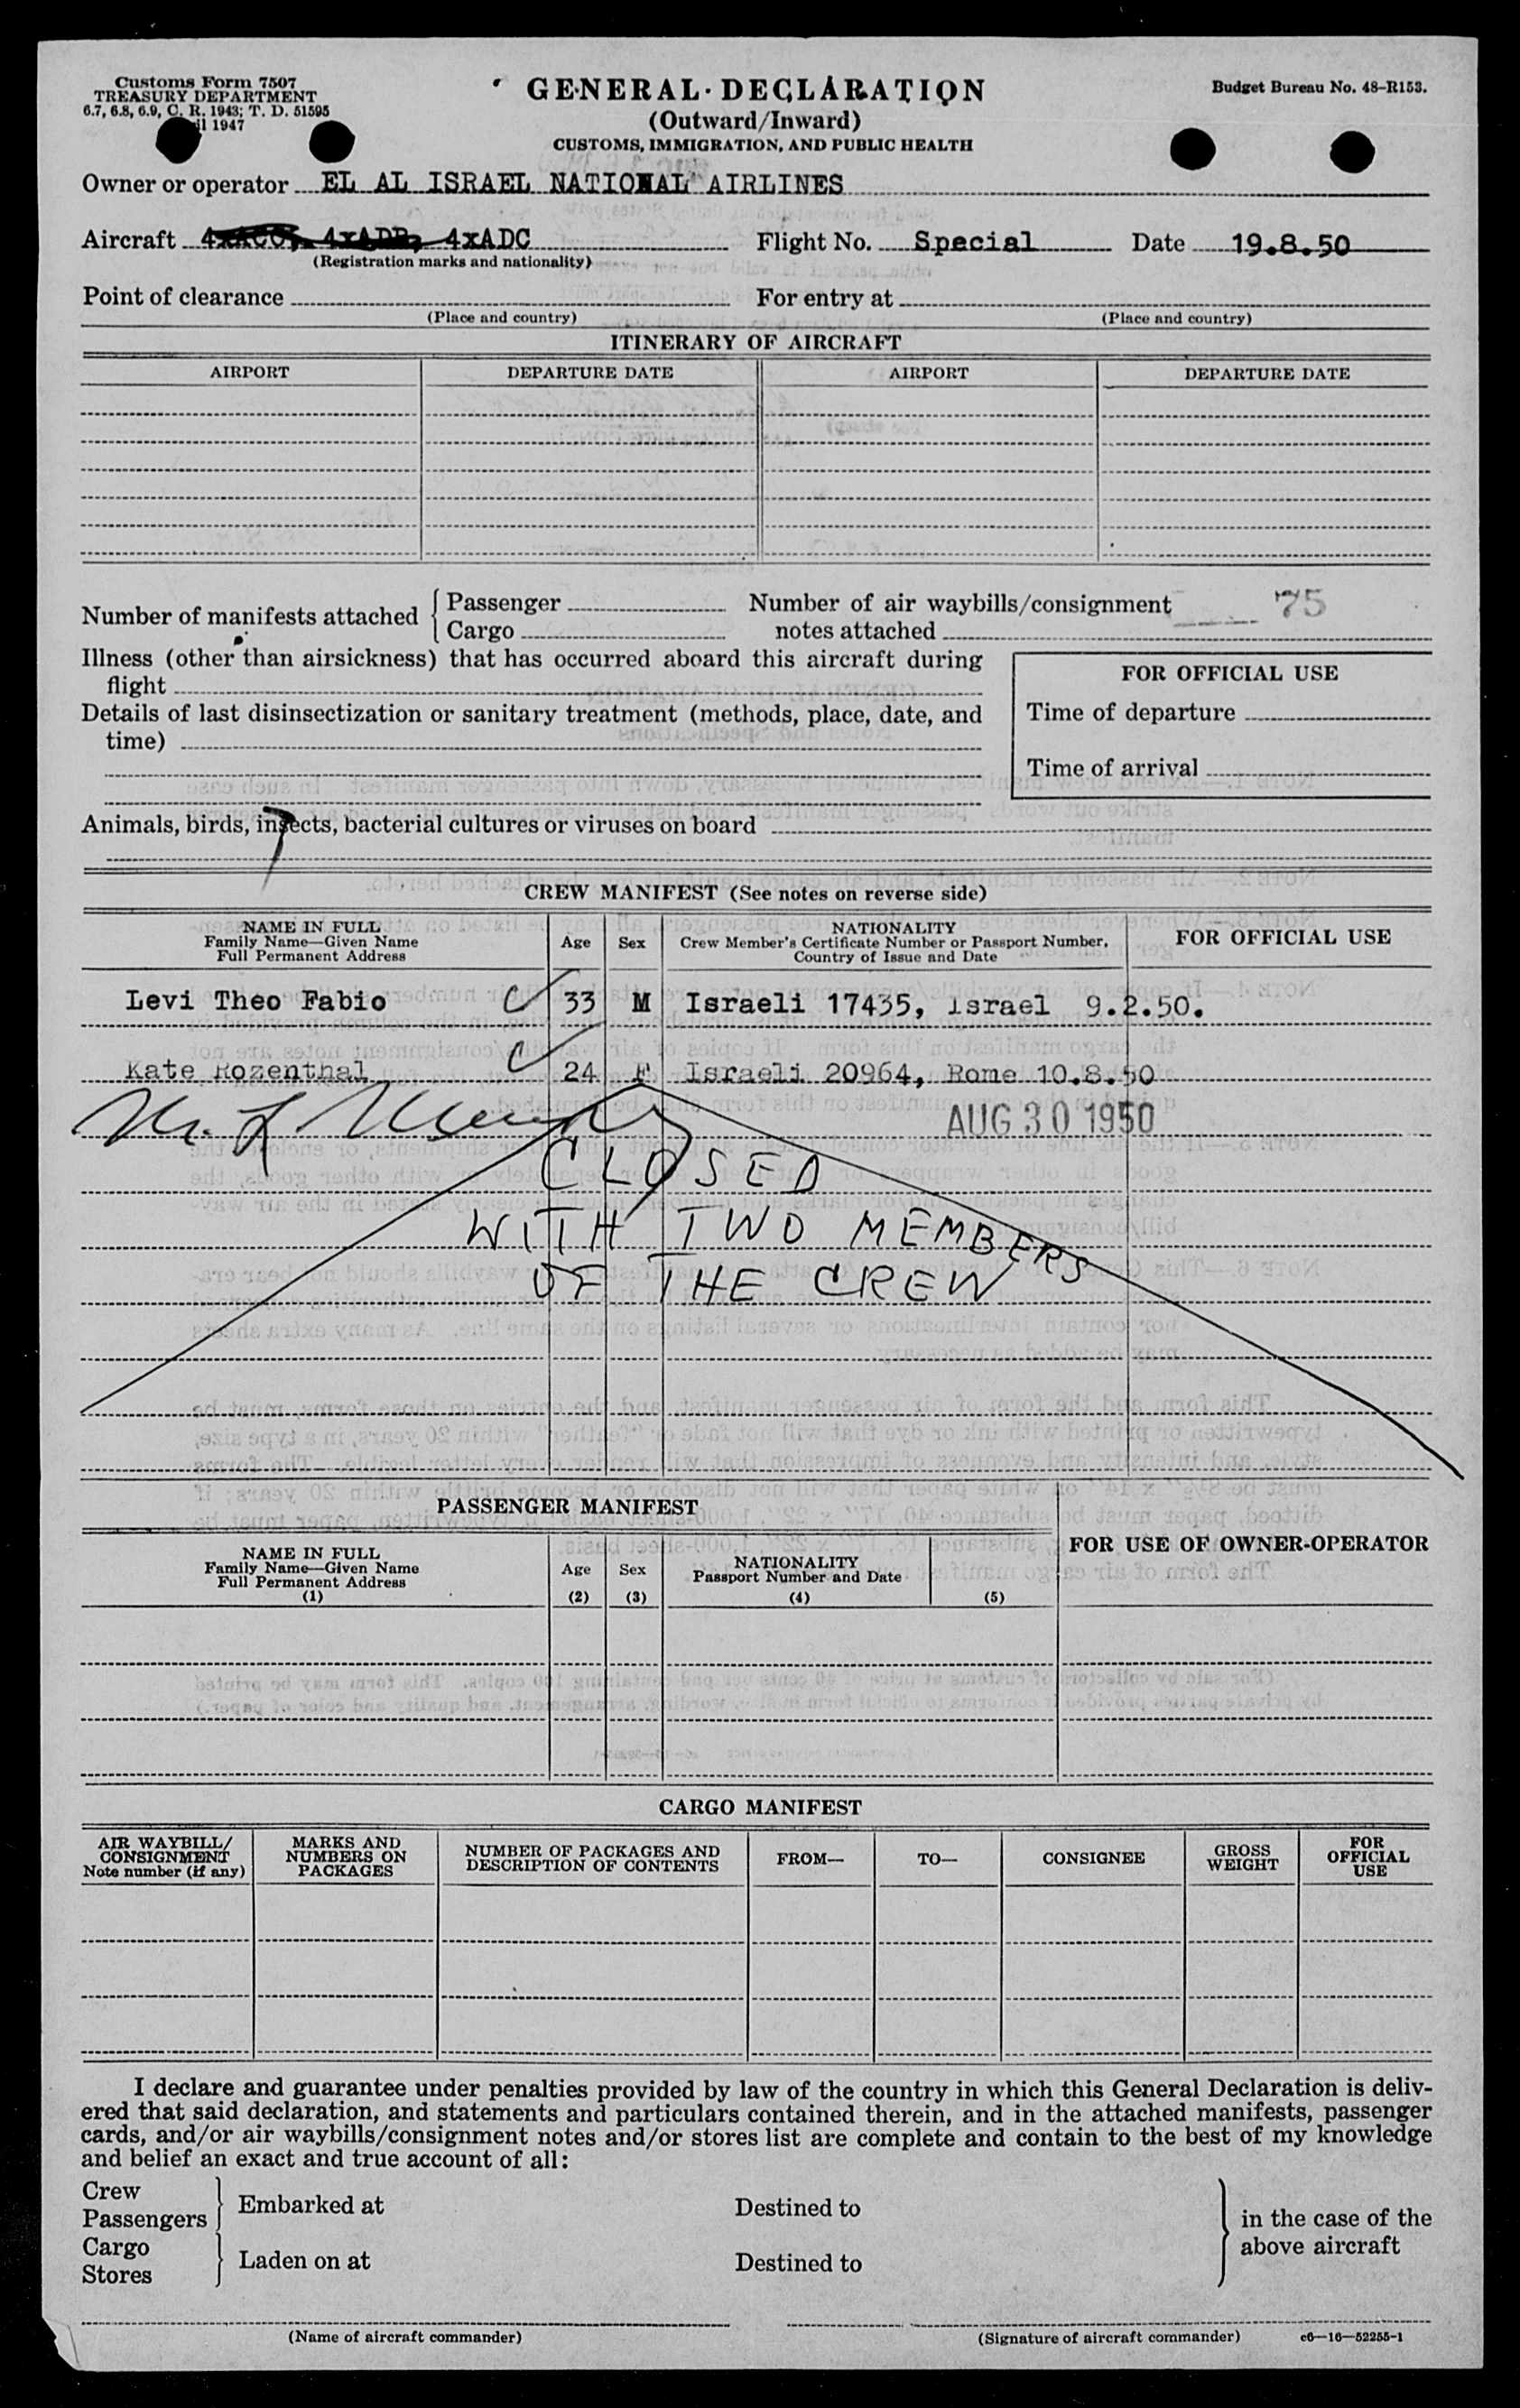 Customs Form 7507
TREASURY DEPARTMENT
6.7, 6.8, 6.9, C. R. 1943; T. D. 51595
1947
GENERAL DECLARATION
(Outward/Inward)
CUSTOMS, IMMIGRATION, AND PUBLIC HEALTH
Budget Bureau No. 48-R153.
Owner or operator EL AL ISRAEL NATIONAL AIRLINES
Aircraft 4xADC Flight No. Special Date 19.8.50
(Registration marks and nationality)
Point of clearance For entry at
(Place and country) (Place and country)
ITINERARY OF AIRCRAFT
AIRPORT DEPARTURE DATE AIRPORT DEPARTURE DATE
Number of manifests attached { Passenger Number of air waybills/consignment 75
Cargo notes attached
Illness (other than airsickness) that has occurred aboard this aircraft during
flight
Details of last disinsectization or sanitary treatment (methods, place, date, and
time)
FOR OFFICIAL USE
Time of departure
Time of arrival
Animals, birds, insects, bacterial cultures or viruses on board
CREW MANIFEST (See notes on reverse side)
NAME IN FULL
Family Name—Given Name
Full Permanent Address
Age
Sex
NATIONALITY
Crew Member's Certificate Number or Passport Number,
Country of Issue and Date
FOR OFFICIAL USE
Levi Theo Fabio 33 M Israeli 17435, Israel 9.2.50.
Kate Rozenthal 24 F Israeli 20964, Rome 10.8.50
AUG 30 1950
CLOSED
WITH TWO MEMBERS
OF THE CREW
PASSENGER MANIFEST
NAME IN FULL
Family Name—Given Name
Full Permanent Address
(1)
Age
(2)
Sex
(3)
NATIONALITY
Passport Number and Date
(4)
(5)
FOR USE OF OWNER-OPERATOR
CARGO MANIFEST
AIR WAYBILL/
CONSIGNMENT
Note number (if any)
MARKS AND
NUMBERS ON
PACKAGES
NUMBER OF PACKAGES AND
DESCRIPTION OF CONTENTS
FROM—
TO—
CONSIGNEE
GROSS
WEIGHT
FOR
OFFICIAL
USE
I declare and guarantee under penalties provided by law of the country in which this General Declaration is deliv-
ered that said declaration, and statements and particulars contained therein, and in the attached manifests, passenger
cards, and/or air waybills/consignment notes and/or stores list are complete and contain to the best of my knowledge
and belief an exact and true account of all:
Crew
Passengers } Embarked at Destined to
Cargo
Stores } Laden on at Destined to
} in the case of the
above aircraft
(Name of aircraft commander) (Signature of aircraft commander) c6—16—52255-1